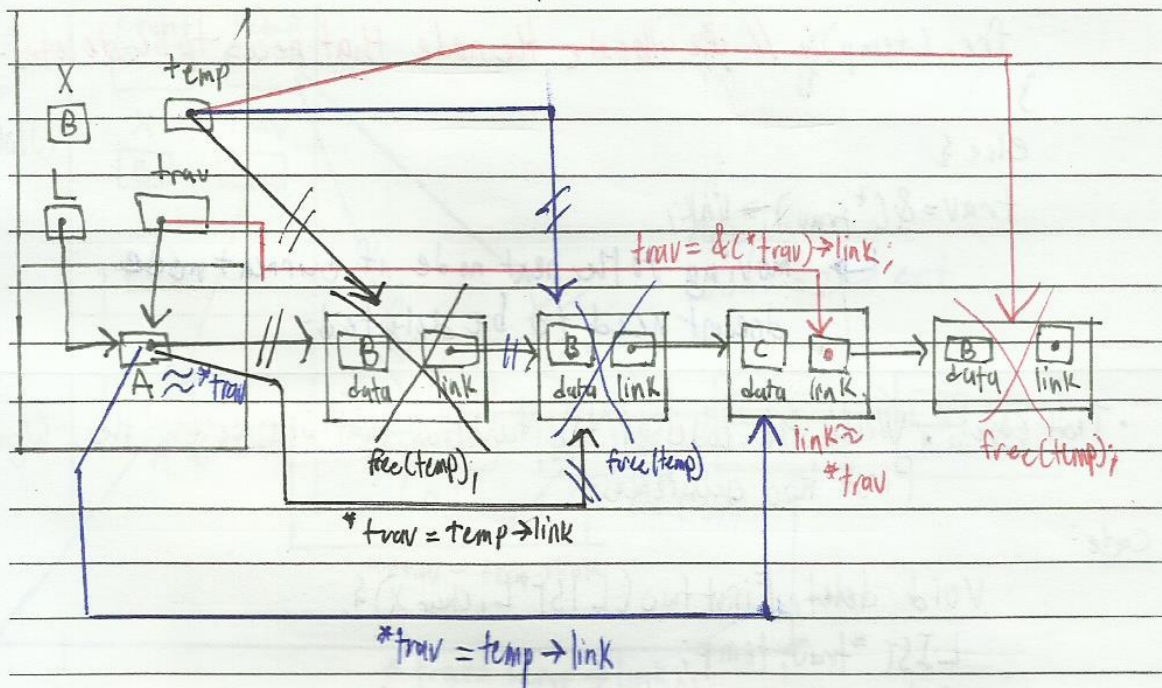 temp
X
B
trav
L
trav = &(*trav)→link;
A ≈ *trav
B
data
link
B
data
link
C
data
link
B
data
link
link ≈
*trav
free(temp);
free(temp)
free(temp);
*trav = temp→link
*trav = temp→link